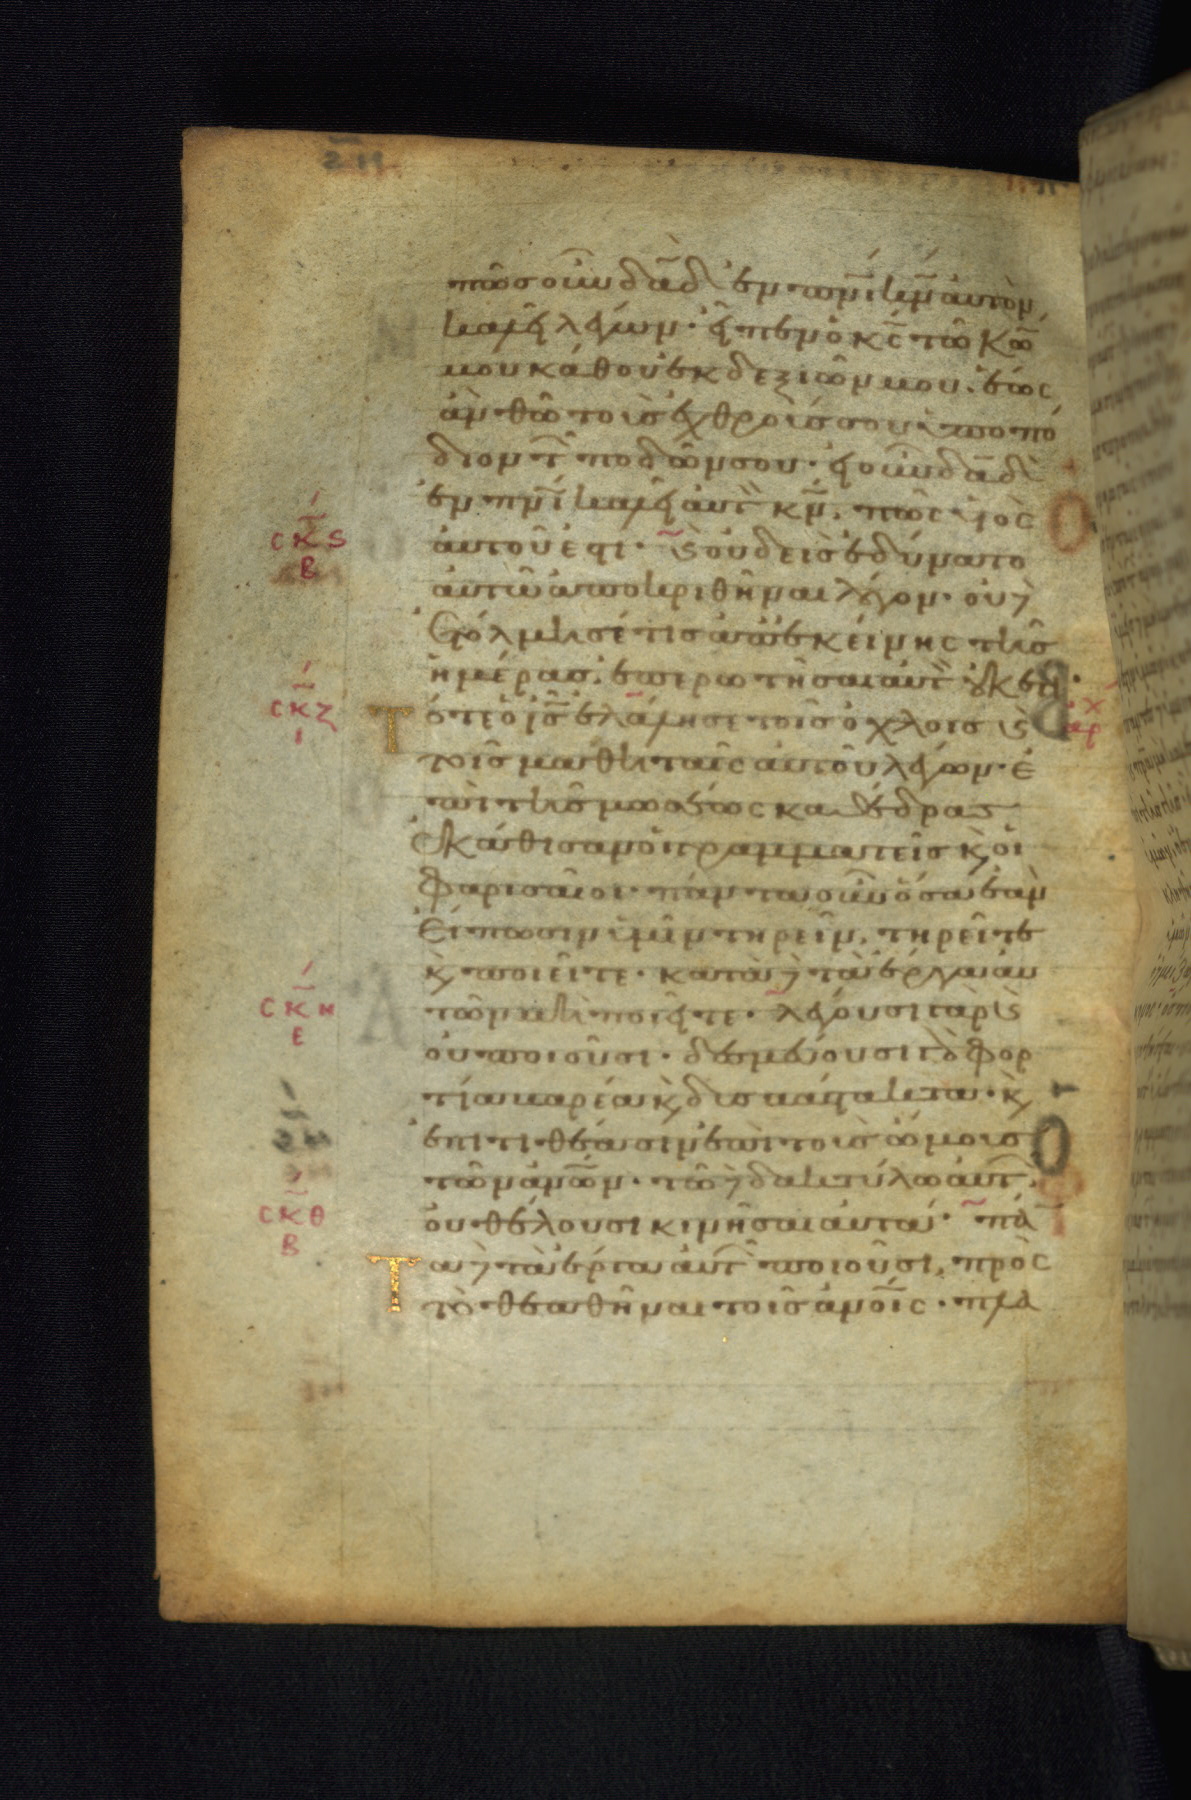 πῶς οὖν δα̅δ ἐν πν̅ι κν̅ αὐτὸν
καλεῖ λέγων· εἶπεν ὁ κς̅ τῶ κω̅
μου κάθου ἐκ δεξιῶν μου. ἕως
ἂν θῶ τοὺς ἐχθρούς σου ὑποπό
διον τ̅ ποδῶν σου· εἰ οὖν δα̅δ
ἐν πν̅ι καλεῖ αὐτ κν̅. πῶς υἱὸς
CΚS
Β
αὐτοῦ ἐστι· καὶ οὐδεὶς ἐδύνατο
αὐτῶ ἀποκριθῆναι λόγον· οὐδ
ἐτόλμησέ τις ἀπ ἐκείνης τῆς
ἡμέρας ἐπερωτῆσαι αὐτ οὐκέτι·
CΚΖ
Ι
Τότε ὁ ις̅ ἐλάλησε τοῖς ὄχλοις καὶ
τοῖς μαθηταῖς αὐτοῦ λέγων· ἐ
πὶ τῆς μωσέως καθέδρας
ἐκάθισαν οἱ γραμματεῖς κ οἱ
φαρισαῖοι· πάντα οὖν ὅσα ἐὰν
εἴπωσιν ὑμῖν τηρεῖν. τηρεῖτε
κ ποιεῖτε· κατὰ δ τὰ ἔργα αὐ
CΚΗ
Ε
τῶν μὴ ποιεῖτε· λέγουσι γὰρ καὶ
οὐ ποιοῦσι· δεσμεύουσι γὰρ φορ
τία βαρέα κ δυσβάστακτα· κ
ἐπιτιθέασιν ἐπὶ τοὺς ὤμους
τῶν ἀνω̅ν· τῶ δ δακτύλω αὐτ
CΚΘ
Β
οὐ θέλουσι κινῆσαι αὐτά· πάν
Τα δ τὰ ἔργα αὐτ ποιοῦσι. πρὸς
τὸ θεαθῆναι τοῖς ἀνοι̅ς· πλα